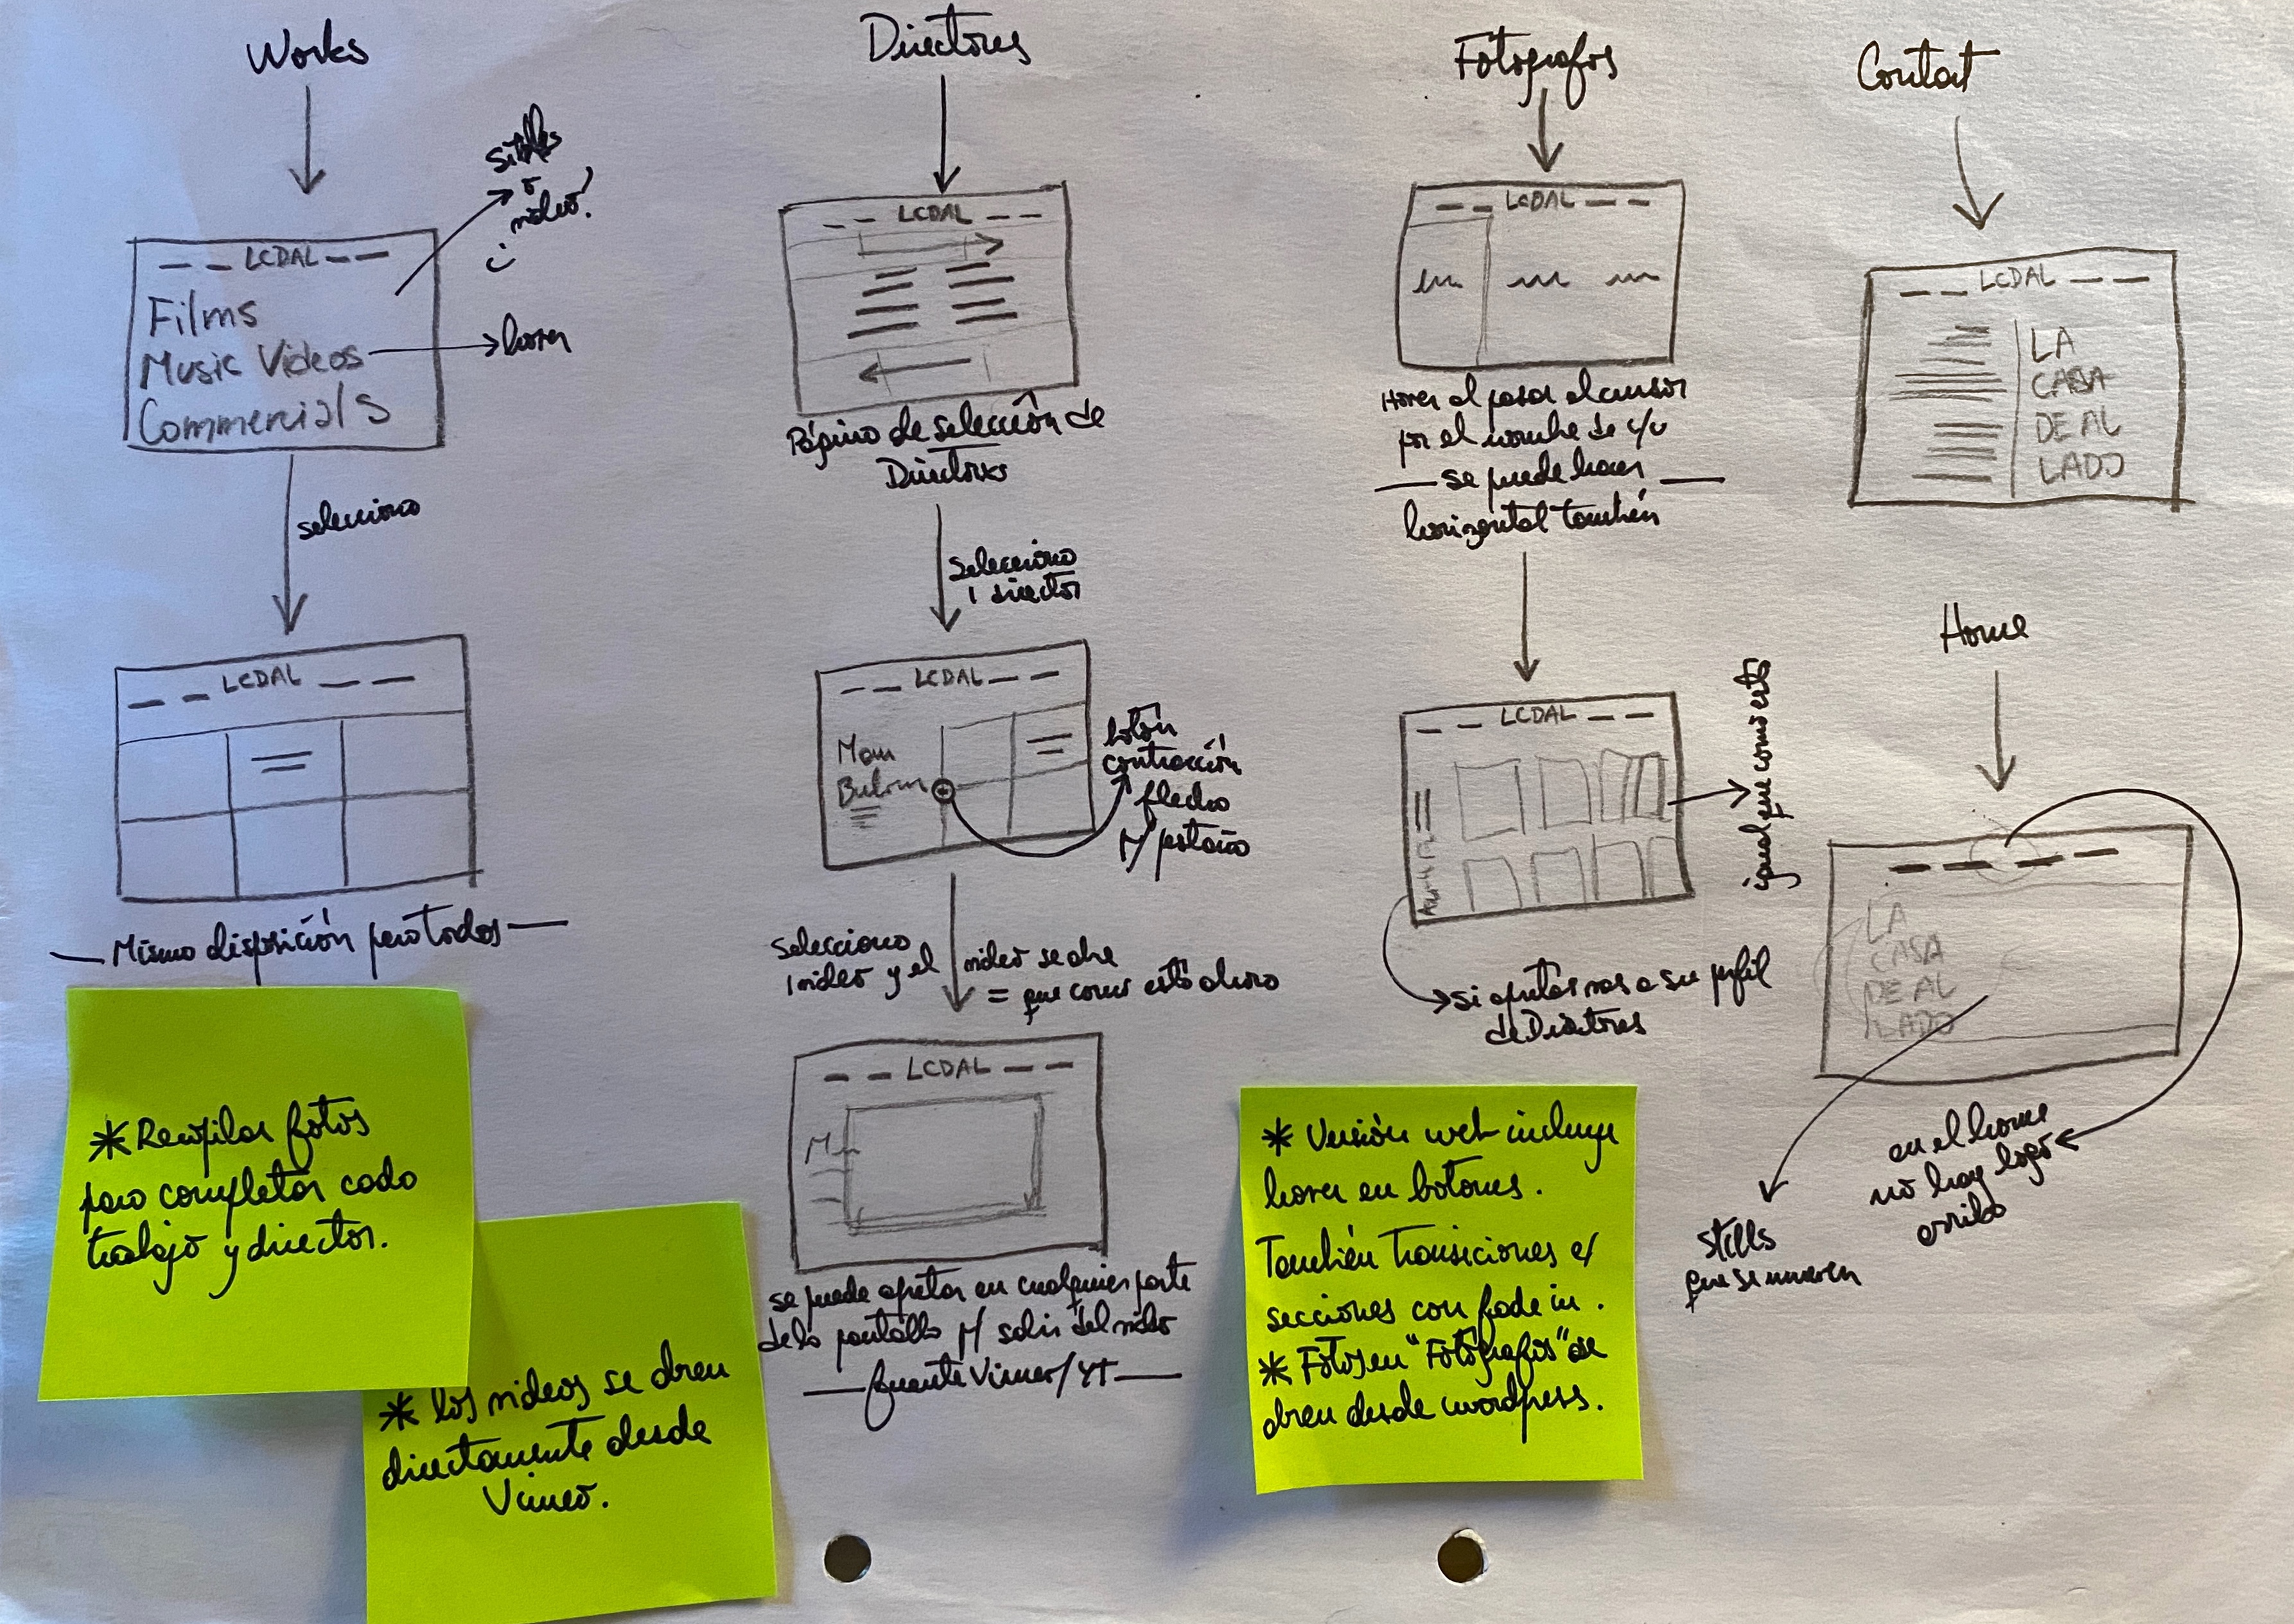 Works
¿stills
o
video?
LCDAL
Films
Music Videos
Commercials
hover
selecciono
LCDAL
Misma disposición para todos
* Recopilar fotos
para completar cada
trabajo y director.
* los videos se abren
directamente desde
Vimeo.
Directores
LCDAL
Página de selección de
Directores
Selecciono
1 director
LCDAL
botón
contracción
flecha
p/ pestaña
selecciono
1 video y el video se abre
= que como está ahora
LCDAL
se puede apretar en cualquier parte
de la pantalla p/ salir del video
fuente Vimeo/YT
Fotógrafos
LCDAL
Hover al pasar el cursor
por el nombre de c/u
se puede hacer
horizontal también
LCDAL
igual que como está
si apretas vas a su perfil
de Directores
* Versión web incluye
hover en botones.
También transiciones e/
secciones con fade in.
* Fotos en "Fotógrafos" se
abren desde wordpress.
Contact
LCDAL
LA
CASA
DE AL
LADO
Home
LA
CASA
DE AL
LADO
en el home
no hay logo
arriba
stills
que se mueven